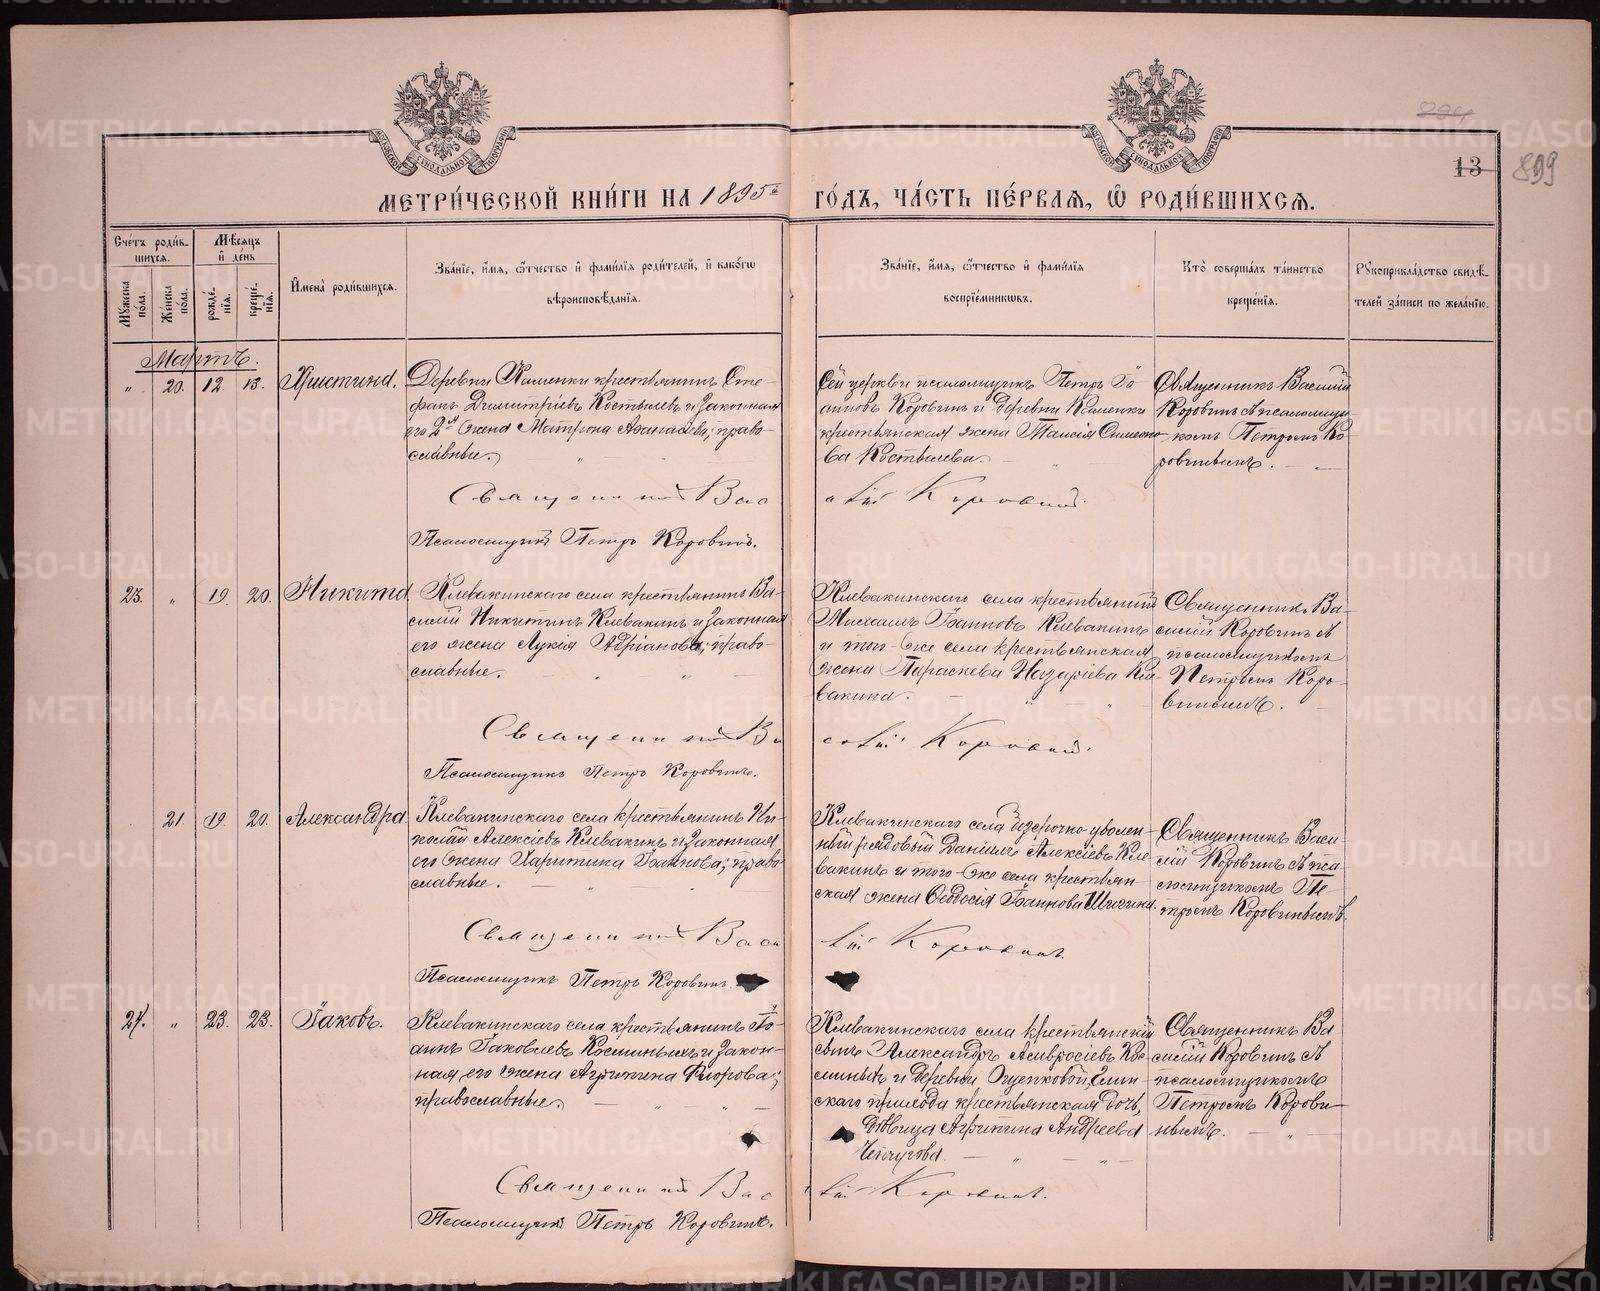 899
13
МЕТРИ́ЧЕСКОЙ КНИ́ГИ НА 1895й ГО́ДЪ, ЧА́СТЬ ПЕ́РВАЯ, Ѡ РОДИ́ВШИХСЯ.
Сче́тъ роди́вшихся.
Мꙋжеска по́ла.
Же́нска по́ла.
Мѣ́сяцъ и҆ де́нь
рожде́нїя.
креще́нїя.
И҆мена̀ роди́вшихся.
Зва́нїе, и҆́мя, ѻ҆́тчество и҆ фами́лїя роди́телей, и҆ како́гѡ
вѣроисповѣ́данїя.
Зва́нїе, и҆́мя, ѻ҆́тчество и҆ фами́лїя
воспрїе́мникѡвъ.
Кто̀ соверша́лъ та́инство
креще́нїя.
Рꙋкоприкла́дство свидѣ́-
телей за́писи по жела́нїю.
Мартъ.
" 20. 12 13. Христина.
Деревни Каменки крестьянинъ Сте-
фанъ Димитріевъ Костылевъ и законная
его 2я жена Матрона Аѳанасьева; право-
славные.
Сей церкви псаломщикъ Петръ Іо-
анновъ Коровинъ и деревни Каменки
крестьянская жена Таисія Симеоно-
ва Костылева.
Священникъ Василій
Коровинъ съ псаломщи-
комъ Петромъ Ко-
ровинымъ.
Священникъ Василій Коровинъ.
Псаломщикъ Петръ Коровинъ.
23. " 19. 20. Никита
Клевакинскаго села крестьянинъ Ва-
силій Никитинъ Клевакинъ и законная
его жена Лукія Адріанова; право-
славные.
Клевакинскаго села крестьянинъ
Михаилъ Іоанновъ Клевакинъ
и того-же села крестьянская
жена Параскева Назаріева Кле-
вакина.
Священникъ Ва-
силій Коровинъ съ
псаломщикомъ
Петромъ Коро-
винымъ.
Священникъ Василій Коровинъ.
Псаломщикъ Петръ Коровинъ.
21. 19 20. Александра
Клевакинскаго села крестьянинъ Ни-
колай Алексіевъ Клевакинъ и законная
его жена Харитина Іоаннова; право-
славные.
Клевакинскаго села безсрочно-уволен-
ный рядовый Даніилъ Алексіевъ Кле-
вакинъ и того-же села крестьян-
ская жена Ѳеодосія Іоаннова
Священникъ Васи-
лій Коровинъ съ пса-
ломщикомъ Пе-
тромъ Коровинымъ.
Священникъ Василій Коровинъ.
Псаломщикъ Петръ Коровинъ.
24. " 23. 23. Іаковъ.
Клевакинскаго села крестьянинъ Іо-
аннъ Іаковлевъ Косминыхъ и закон-
ная его жена Агрипина Флорова;
православные.
Клевакинскаго села крестьянскій
сынъ Александръ Амвросіевъ Кос-
миныхъ и деревни Ощепковой,
скаго прихода крестьянская дочь,
дѣвица Агрипина Андреева
Чепчугова.
Священникъ Ва-
силій Коровинъ съ
псаломщикомъ
Петромъ Корови-
нымъ.
Священникъ Василій Коровинъ.
Псаломщикъ Петръ Коровинъ.
METRIKI.GASO-URAL.RU